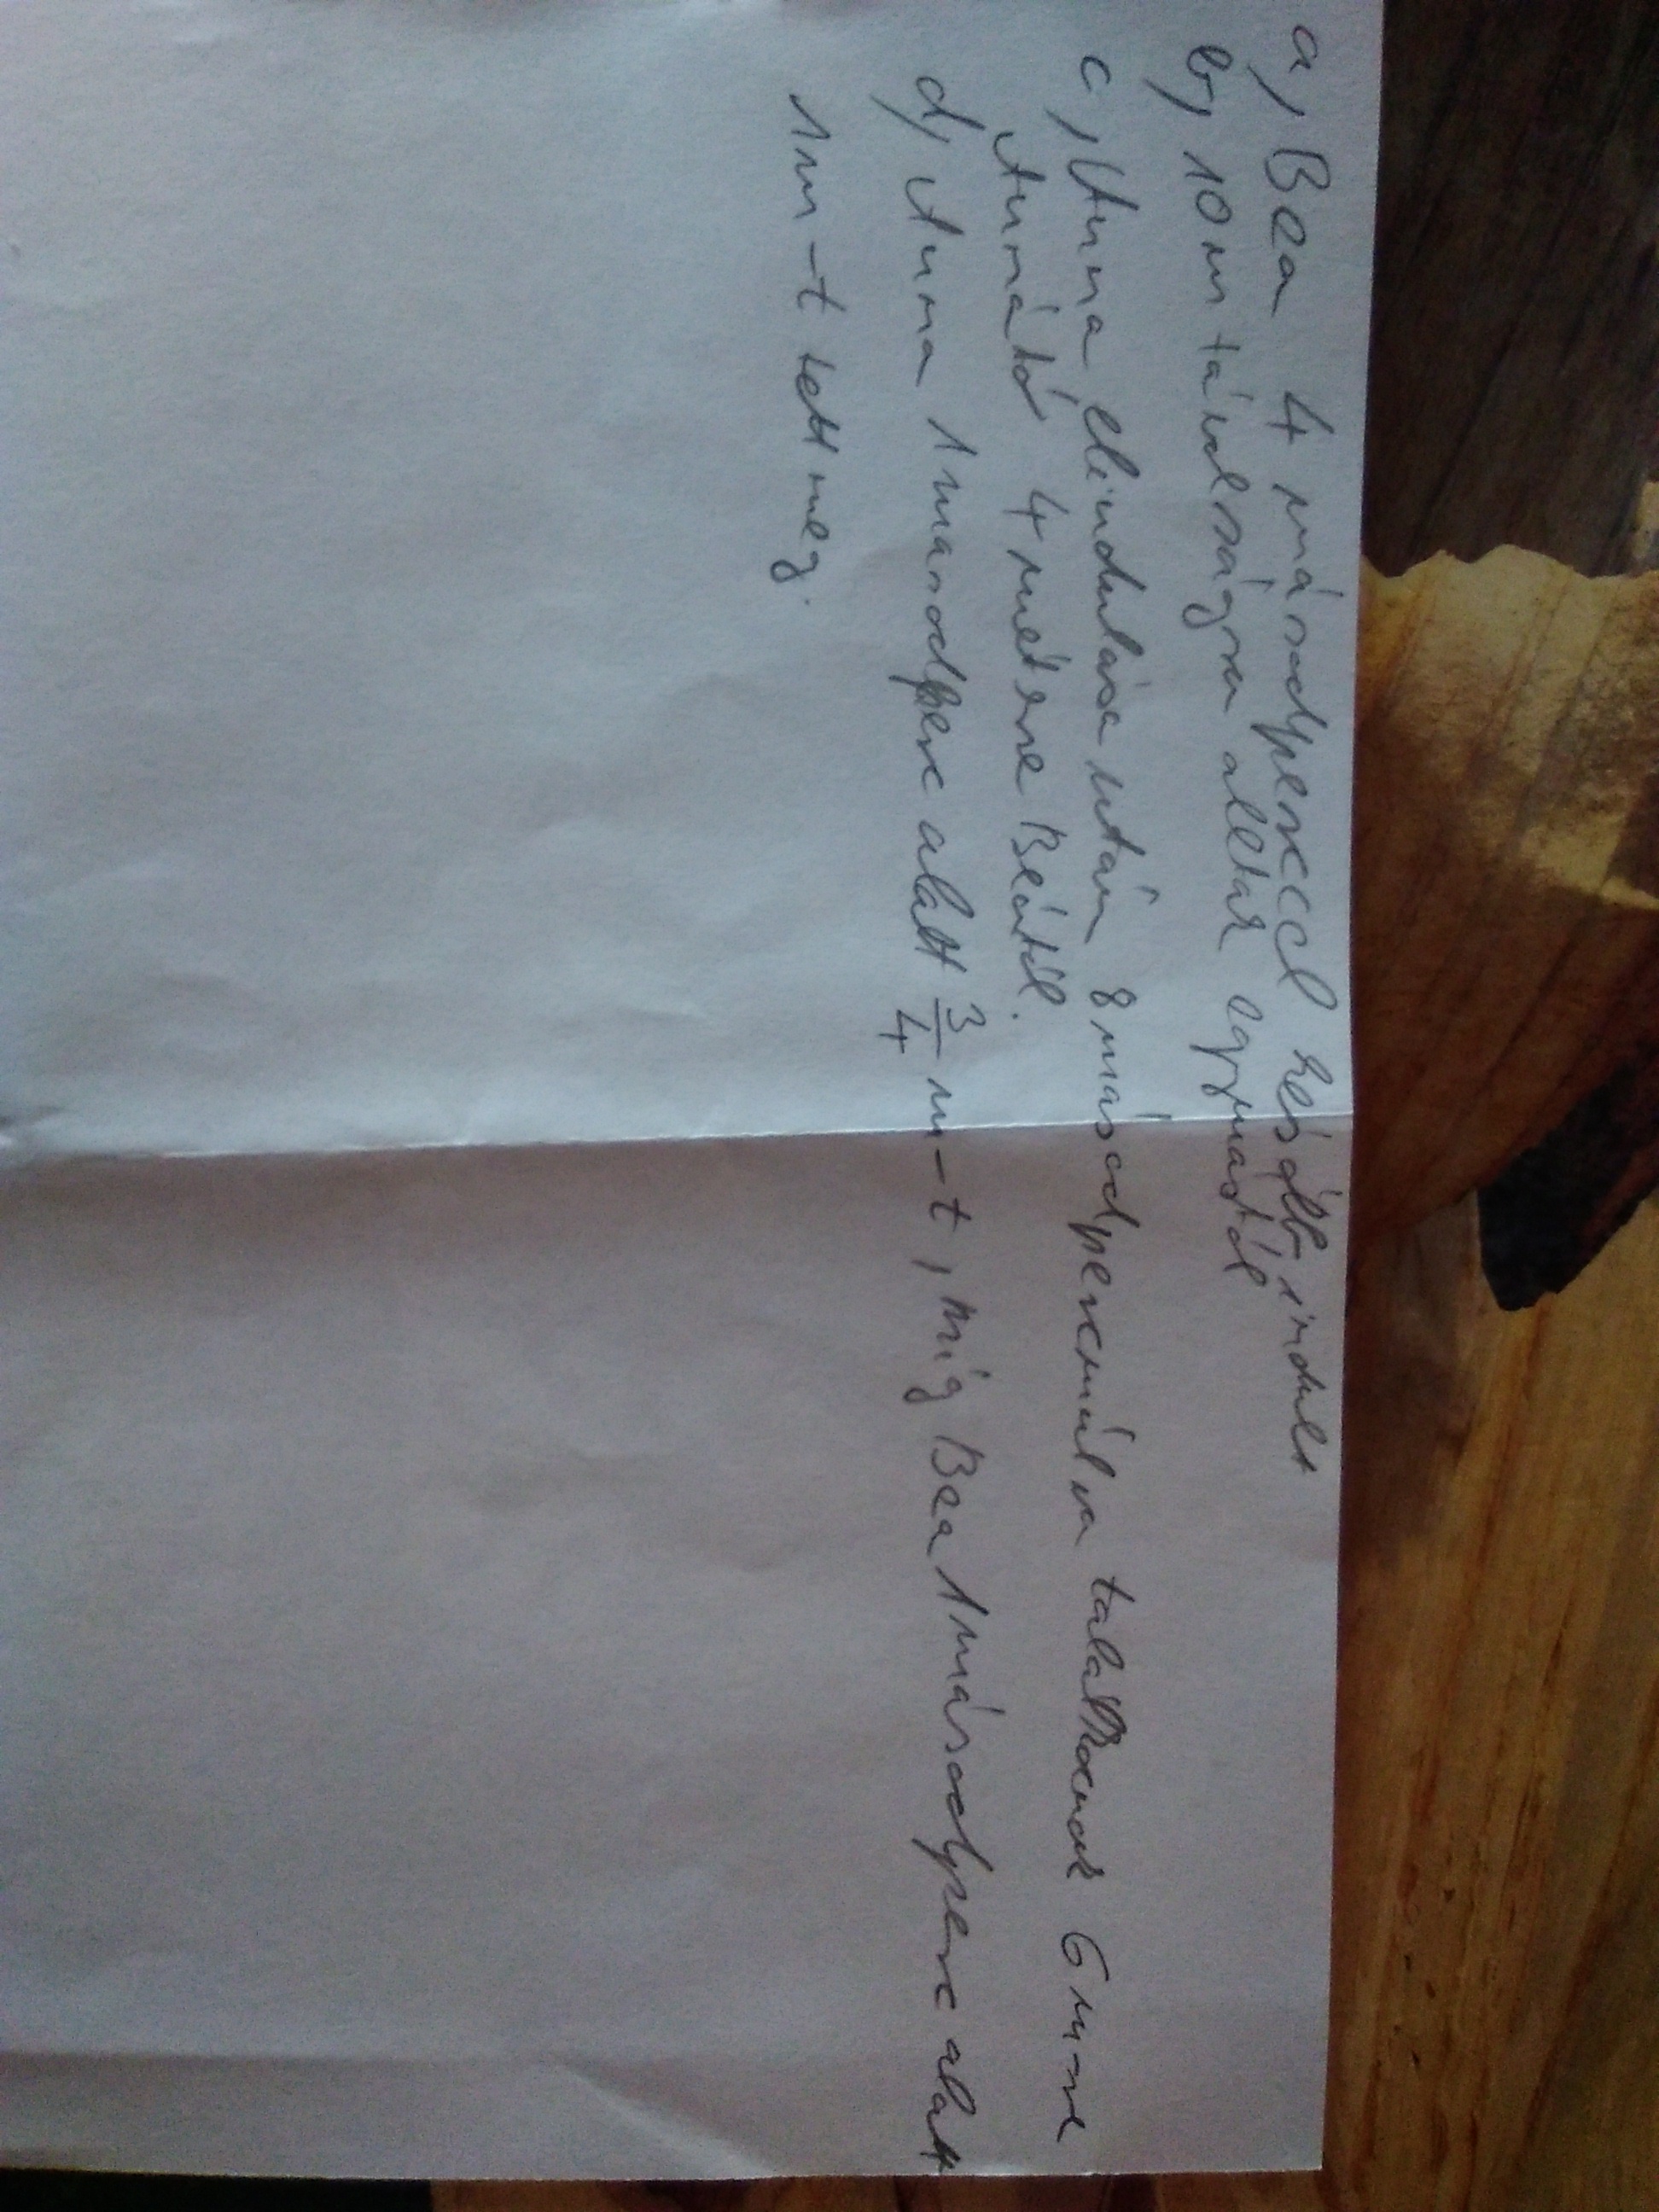 a, Bea 4 másodperccel később indult
b, 10 m távolságra álltak egymástól
c, Anna elindulása után 8 másodpercnúlva találkoznak 6 m-re
Annától 4 méterre Beától.
d, Anna 1 masodperc alatt 3/4 m-t, míg Bea 1 másodperc alatt
1m-t tett meg.